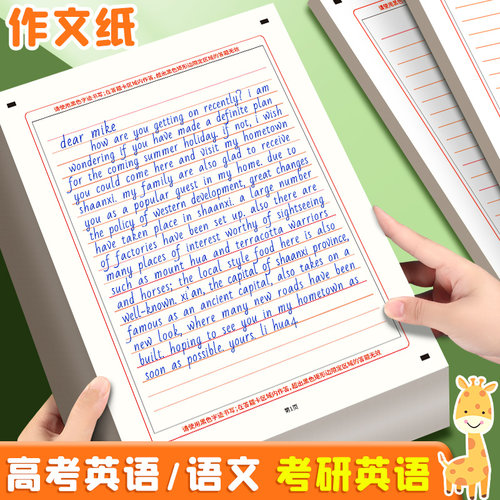 作文纸
请使用黑色字迹书写;在答题卡区域内作答,超出黑色矩形边限定区域的答题无效
dear mike
how are you getting on recently? i am
wondering if you have made a definite plan
for the coming summer holiday. if not, i wish
you could come here and visit my hometown
shaanxi. my family are also glad to receive
you as a popular guest in my home. due to
the policy of western development, great changes
have taken place in shaanxi. a large number
of factories have been set up. also there are
many places of interest worthy of sightseeing
such as mount hua and terracotta warriors
and horses; the local style food here is also
well-known. xi'an, the capital of shaanxi province,
famous as an ancient capital, also takes on a
new look, where many new roads have been
built. hoping to see you in my hometown as
soon as possible. yours. li hua
请使用黑色字迹书写;在答题卡区域内作答,超出黑色矩形边限定区域的答题无效
第1页
高考英语/语文 考研英语